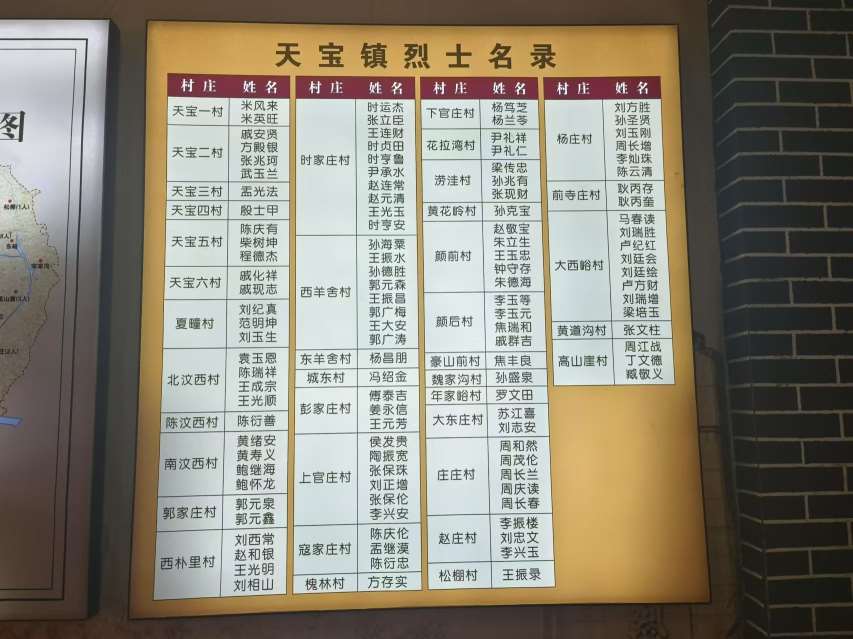 天宝镇烈士名录
村庄 姓名
天宝一村 米风来
米英旺
天宝二村 戚安贤
方殿银
张兆珂
武玉兰
天宝三村 孟光法
天宝四村 殷士甲
天宝五村 陈庆有
柴树坤
程德杰
天宝六村 戚化祥
戚现志
夏疃村 刘纪真
范明坤
刘玉生
北汶西村 袁玉恩
陈瑞祥
王成宗
王光顺
陈汶西村 陈衍善
南汶西村 黄绪安
黄寿义
鲍继海
鲍怀龙
郭家庄村 郭元泉
郭元鑫
西朴里村 刘西常
赵和银
王光明
刘相山
村庄 姓名
时家庄村 时运杰
张立臣
王连财
时贞田
时亨鲁
尹承水
赵连常
赵元清
王光玉
时亨安
西羊舍村 孙海粟
王振水
孙德胜
郭元森
王振昌
郭广梅
王大安
郭广涛
东羊舍村 杨昌朋
城东村 冯绍金
彭家庄村 傅泰吉
姜永信
王元芳
上官庄村 侯发贵
陶振宽
张保珠
刘正增
张保伦
李兴安
寇家庄村 陈庆伦
孟继漠
陈衍忠
槐林村 方存实
村庄 姓名
下官庄村 杨笃芝
杨兰苓
花拉湾村 尹礼祥
尹礼仁
涝洼村 梁传忠
孙兆有
张现财
黄花岭村 孙克宝
颜前村 赵敬宝
朱立生
王玉忠
钟守存
朱德海
颜后村 李玉等
李玉元
焦瑞和
戚群吉
豪山前村 焦丰良
魏家沟村 孙盛泉
年家峪村 罗文田
大东庄村 苏江喜
刘志安
庄庄村 周和然
周茂伦
周长兰
周庆读
周长春
赵庄村 李振楼
刘忠文
李兴玉
松棚村 王振录
村庄 姓名
杨庄村 刘方胜
孙圣贤
刘玉刚
周长增
李灿珠
陈云清
前寺庄村 耿丙存
耿丙奎
大西峪村 马春读
刘瑞胜
卢纪红
刘廷会
刘廷绘
卢方财
刘瑞增
梁培玉
黄道沟村 张文柱
高山崖村 周江战
丁文德
臧敬义
图